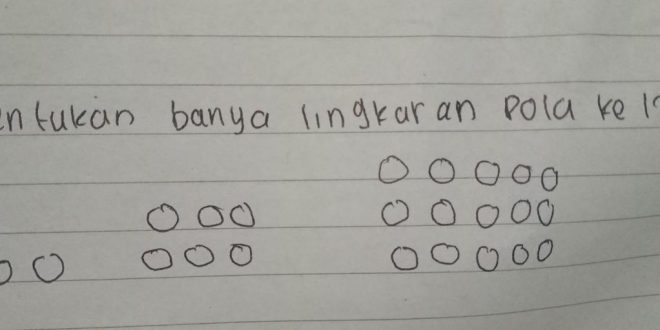 entukan banya lingkaran pola ke 1